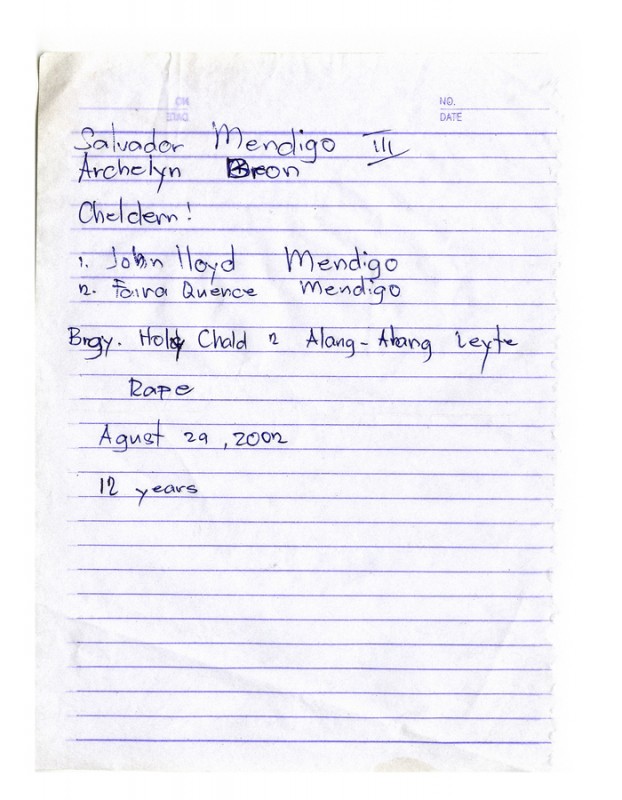 NO.
DATE
Salvador Mendigo III
Archelyn Oreon
Cheldern!
1. John lloyd Mendigo
2. Faira Quence Mendigo
Brgy. Holy Chald 2 Alang-Alang Leyte
Rape
Agust 29, 2002
12 years